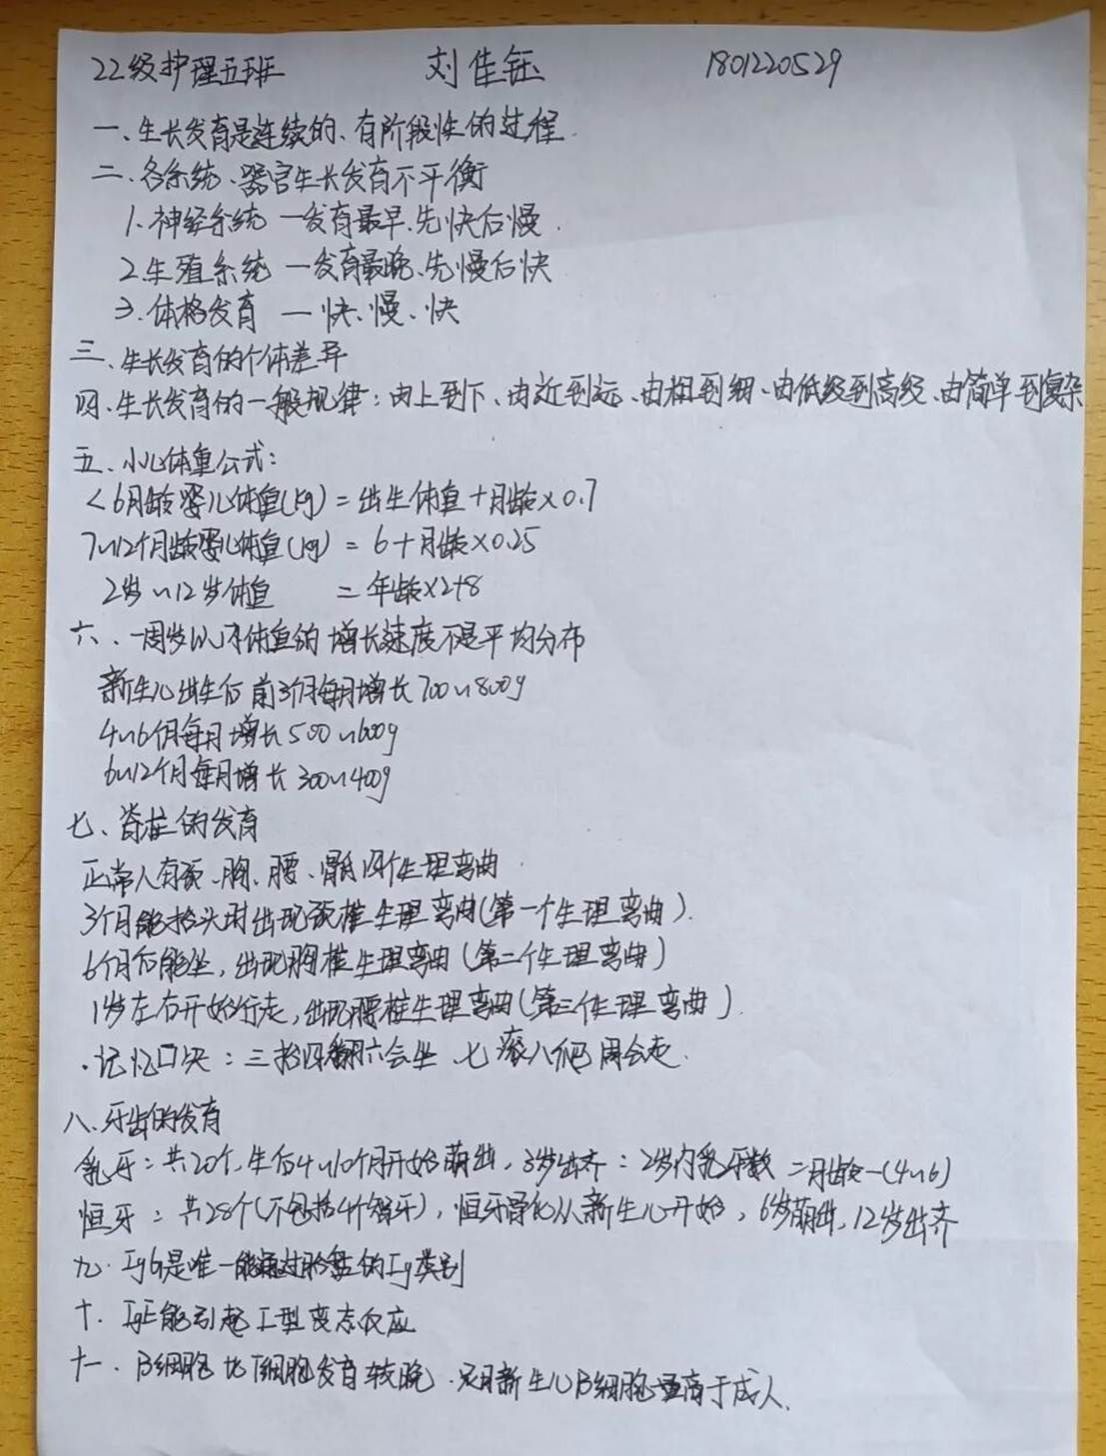 22级护理五班 刘佳钰 1801220529
一、生长发育是连续的、有阶段性的过程.
二、各系统、器官生长发育不平衡
1.神经系统 一发育最早.先快后慢.
2.生殖系统 一发育最晚.先慢后快
3.体格发育 一快、慢、快
三、生长发育的个体差异
四、生长发育的一般规律：由上到下、由近到远、由粗到细、由低级到高级、由简单到复杂
五、小儿体重公式：
<6月龄婴儿体重(kg)=出生体重+月龄×0.7
7~12个月龄婴儿体重(kg)=6+月龄×0.25
2岁~12岁体重 =年龄×2+8
六、一周岁以内体重的增长速度不是平均分布
新生儿出生后前3个月每月增长700~800g
4~6个月每月增长500~600g
6~12个月每月增长300~400g
七、脊柱的发育
正常人有颈、胸、腰、骶四个生理弯曲
3个月能抬头时出现颈椎生理弯曲(第一个生理弯曲).
6个月后能坐,出现胸椎生理弯曲(第二个生理弯曲)
1岁左右开始行走,出现腰椎生理弯曲(第三个生理弯曲).
·记忆口诀：三抬四翻六会坐 七滚八爬周会走.
八、牙齿的发育
乳牙：共20个,生后4~10个月开始萌出,3岁出齐：2岁内乳牙数=月龄-(4~6)
恒牙：共28个(不包括4个智牙),恒牙骨化从新生儿开始,6岁萌出,12岁出齐
九.IgG是唯一能通过胎盘的Ig类别
十.IgE能引起I型变态反应
十一.B细胞比T细胞发育较晚.足月新生儿B细胞量高于成人.